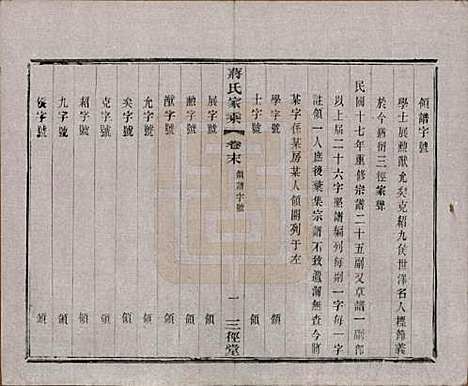 領譜字號
學士展勲猷允奕克紹九侯世澤名人標雅義
於今猶衍三徑家聲
民國十七年重修宗譜二十五副又草譜一副部
以上屆二十六字墾譜編列每副一字每一字
註領一人庶後彙集宗譜不致遺漏無查今將
某字係某房某人領開列于左
學字號 領
士字號 領
蔣氏家乘 卷末 領譜字號 一 三徑堂
展字號 領
勲字號 領
猷字號 領
允字號 領
奕字號 領
克字號 領
紹字號 領
九字號 領
侯字號 領